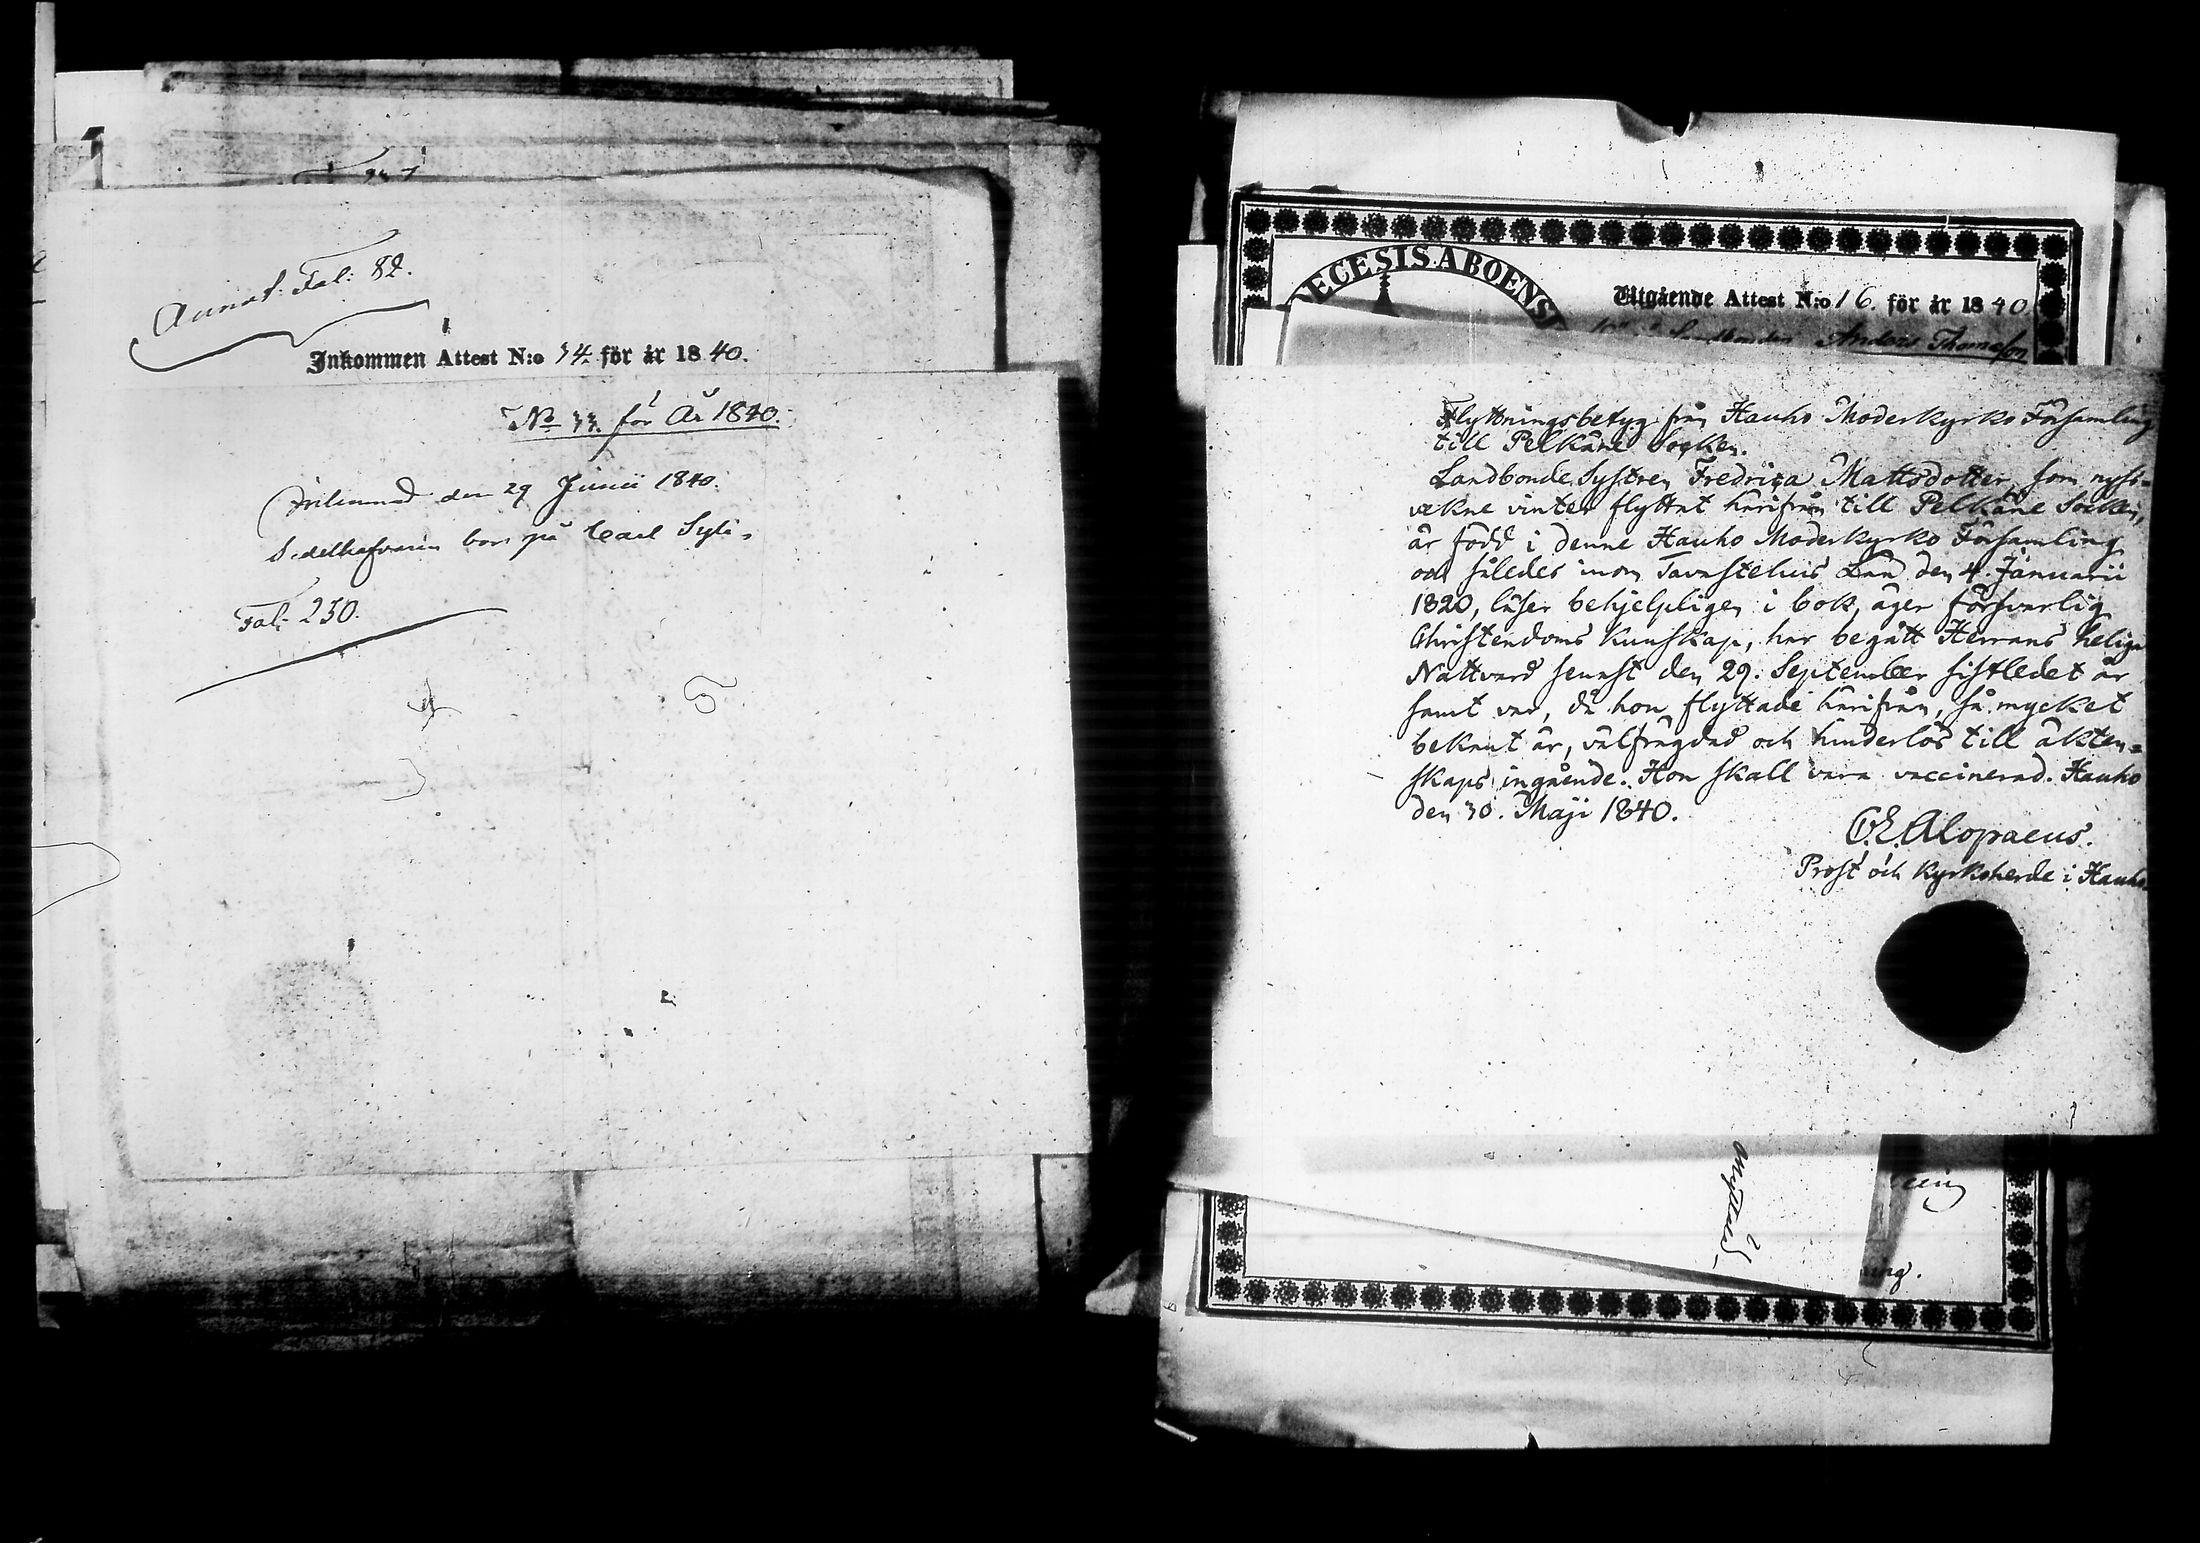 Annot: Fol: 82.
Inkommen Attest N:o 34. för år 1840.
No 33. för År 1840.
Inlemnad den 29 Junii 1840.
Sedelhafvarin bor på Carl Sylä.
Fol: 230.
ECESIS ABOENSI
Utgående Attest N:o 16. för år 1840
Landbonden Anders Thomasson
Flyttningsbetyg från Hauho Moderkyrko Församling
till Pelkäne Socken.
Landbonde Systren Fredrica Mattsdotter, som nyss-
vekne vinter flyttat härifrån till Pelkäne Socken,
är född i denne Hauho Moderkyrko Församling
och således inom Tavastehus Län den 4. Januarii
1820, läser behjelpligen i bok, äger försvarlig
Christendoms Kunskap, har begått Herrans heliga
Nattvard senast den 29. September sistledet år
samt var, då hon flyttade härifrån, så mycket
bekant är, välfrägdad och hinderlös till äkten=
skaps ingående. Hon skall vara vaccinerad. Hauho
den 30. Maji 1840.
C.E. Alopaeus.
Prost och Kyrkoherde i Hauho.